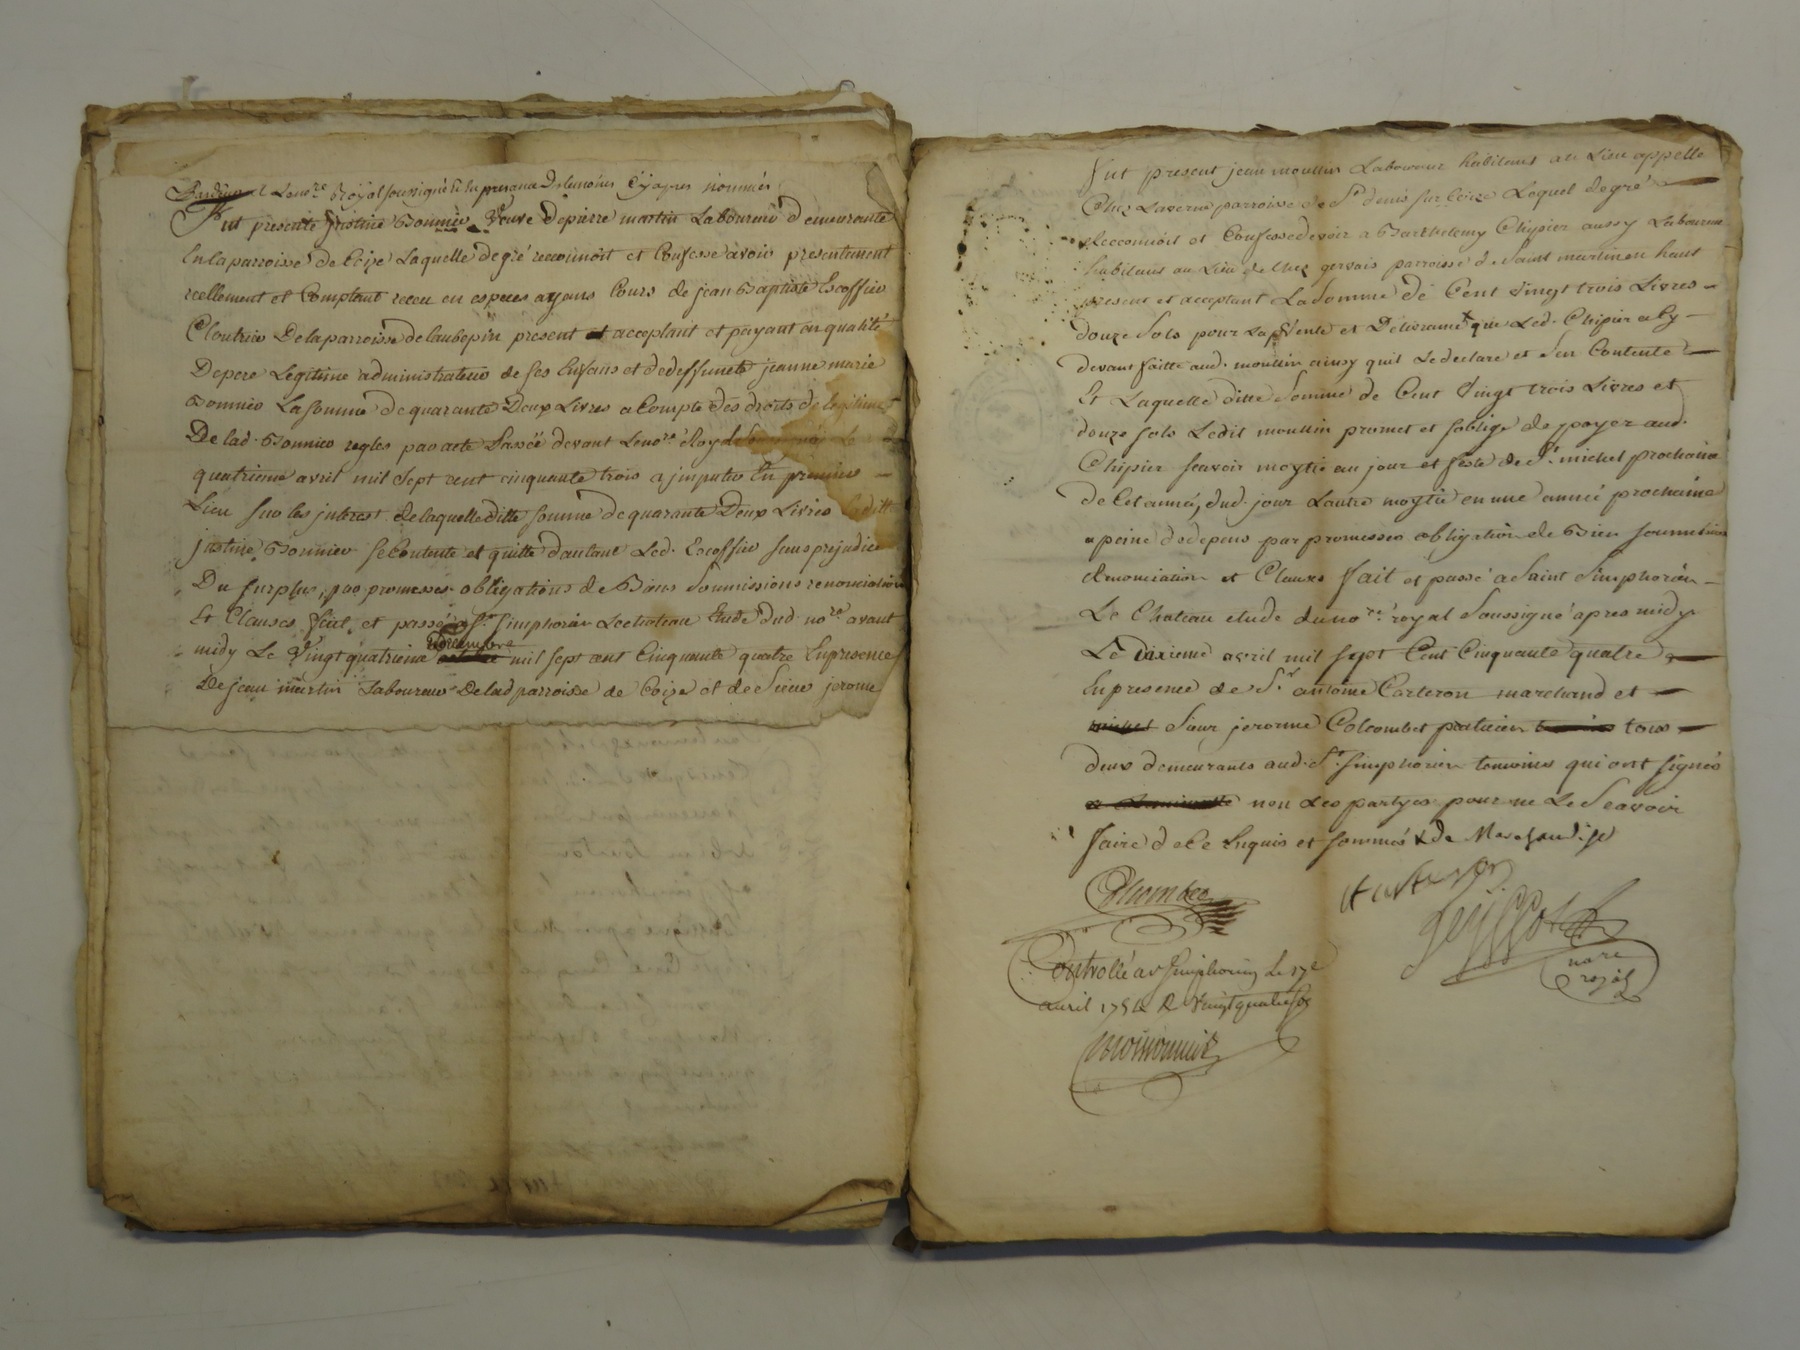 Le no.re Royal soussigné Et En presence Des temoins Cy apres nommés
Fut presente Justine Bonnier Veuve De pierre martin Laboureur Demeurante
En la parroisse de Coize Laquelle de gré reconnoit et Confesse avoir presentement
reellement et Comptant receu en especes ayans Cours de jean Baptiste Escoffier
Cloutrier De la parroisse de laubepin present et acceptant et payant en qualité
De pere Legitime administrateur de ses Enfans et de deffunete jeanne marie
Bonnier La somme de quarante Deux Livres a Compte des droits de legitime
De lad. Bonnier regles par acte Passé devant Le no.re Royal Soussigné Le
quatrieme avril mil sept cent cinquante trois a jmputer En premier
Lieu sur les jnterest de laquelle ditte somme de quarante Deux Livres laditte
justine Bonnier se Contente et quitte dautant Led. Escoffier sans prejudice
Du surplus, par promesses obligations de Biens Soumissions renonciations
Et Clauses Fait et passé a St. Simphorien Le chateau Etude dud. no.re avant
midy Le Vingt quatrieme Decembre mil sept cent Cinquante quatre En presence
De jean martin Laboureur De lad parroisse de Coize et de Sieur jerome
Fut present jean moullin Laboureur habitant au Lieu appellé
Chez Laverne parroisse de St denis sur Coize Lequel de gré
Reconnoit et Confesse devoir a Barthelemy Chipier aussy Laboureur
habitant au Lieu de Chez gervais parroisse de Saint martin en haut
present et acceptant La Somme de Cent Vingt trois Livres
douze Sols pour La Vente et Delivrance + que Led. Chipier a Cy
devant faitte aud. moullin ainsy quil Le declare et sen Contente
Et Laquelle ditte Somme de Cent Vingt trois Livres et
douze sols Ledit moullin promet et soblige de payer aud.
Chipier scavoir moytié au jour et feste de St. michel prochaine
de Cet année, dud. jour Lautre moytié en une année prochaine
a peine de depens par promesses obligation de Bien soumission
Renonciation et Clauses Fait et passé a Saint Simphorien
Le Chateau etude du no.re royal Soussigné apres midy
Le dixieme avril mil sept Cent Cinquante quatre
En presence de Sr. antoine Carteron marchand et
Sieur jerorme Colcombet praticien tous
deux demeurants aud. St. Simphorien temoins qui ont signés
non Les partyes pour ne Le Scavoir
faire de Ce Enquis et sommés + de Marchandise
Colcombet
Carteron
no.re
royal
Controllé a St Simphorien Le 17e
avril 1754 R Vingt quatre sols